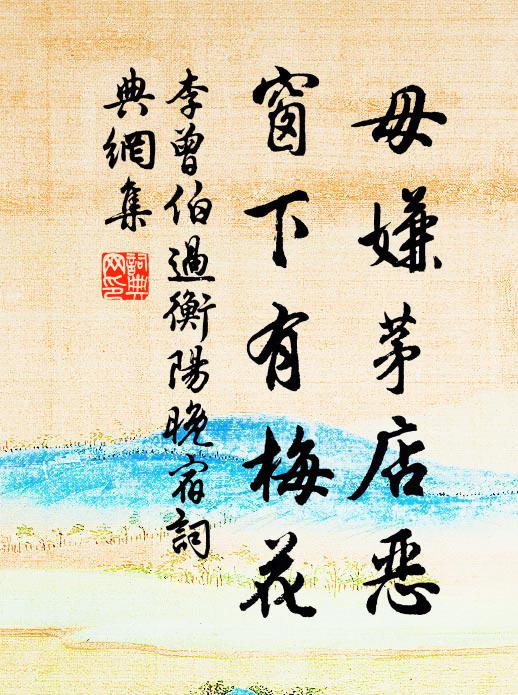 毋嫌茅店惡
窗下有梅花
李曾伯過衡陽晚宿詞
典網集
詞典
网印